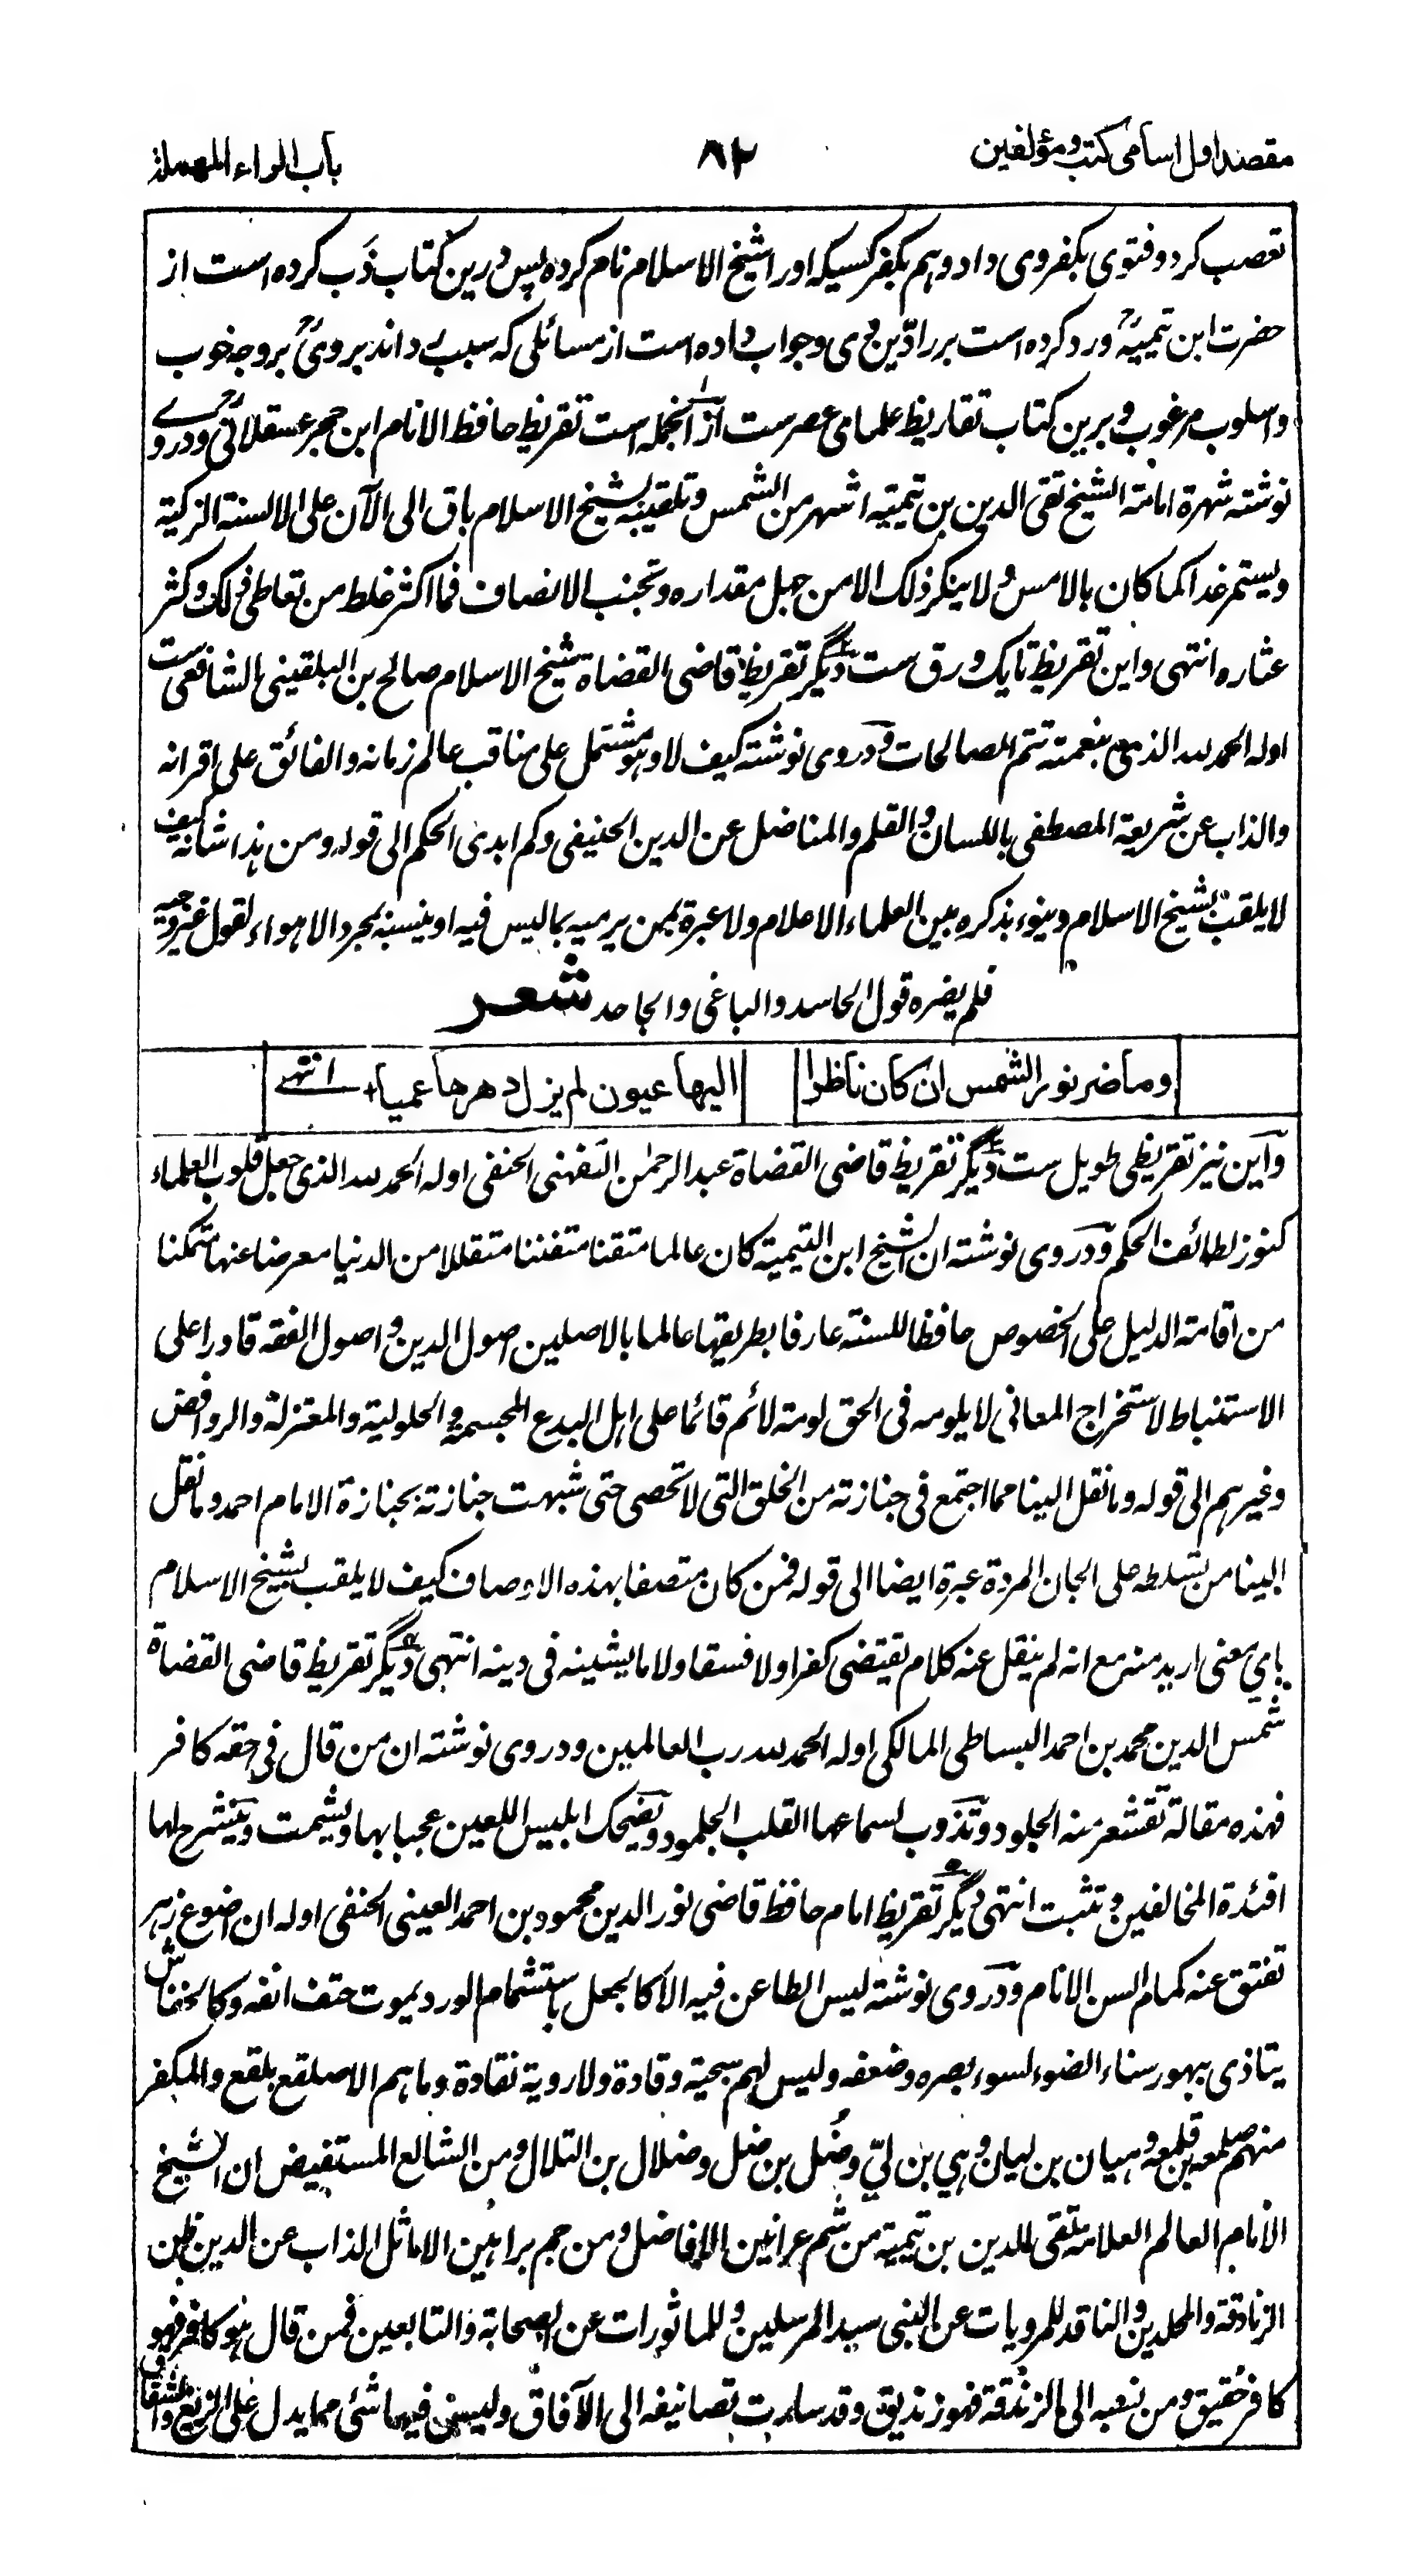 مقصد اول اسامی کتب و مؤلفین
۸۲
باب الراء المهملة
تعصب کرد و فتوی بکفر وی داد و هم بکفر کسیکه او را شیخ الاسلام نام کرده پس درین کتاب ذَب کرده است از
حضرت ابن تیمیهؒ و رد کرده است بر رادّین وی و جواب داده است از مسائلی که سبب بے داند بر ویؒ بر وجه خوب
و اسلوب مرغوب و برین کتاب تقاریظ علمای عصرست ازآنجمله است تقریظ حافظ الانام ابن حجر عسقلانیؒ و در وے
نوشته شهرة امامة الشیخ تقی الدین بن تیمیه اشهر من الشمس و تلقیبه بشیخ الاسلام باق الی الآن علی الالسنة الزکیة
ویستمر غدا کما کان بالامس ولا ینکر ذلک الا من جهل مقداره و تجنب الانصاف فما اکثر غلط من تعاطی ذلک و کثر
عثاره انتهی و این تقریظ تا یک ورق ست دیگر تقریظ قاضی القضاة شیخ الاسلام صالح بن البلقینی الشافعی ست
اوله الحمد لله الذی بنعمته تتم الصالحات و در وی نوشته کیف لا و هو مشتمل علی مناقب عالم زمانه والفائق علی اقرانه
والذاب عن شریعة المصطفی باللسان والقلم والمناضل عن الدین الحنیفی وکم ابدی الحکم الی قوله ومن هذا شانه کیف
لا یلقب بشیخ الاسلام وینوء بذکره بین العلماء الاعلام ولا عبرة بمن یرمیه بما لیس فیه او ینسبه بمجرد الاهواء لقول غیر وجیه
فلم یضره قول الحاسد والباغی والجاحد شعر
وما ضر نور الشمس ان کان ناظرا الیها عیون لم یزل دهرها عمیا انتهے
و این نیز تقریظی طویل ست دیگر تقریظ قاضی القضاة عبد الرحمٰن التفهنی الحنفی اوله الحمد لله الذی جعل قلوب العلماء
کنوز لطائف الحکم و در وی نوشته ان الشیخ ابن التیمیة کان عالما متقنا متفننا متقللا من الدنیا معرضا عنها متمکنا
من اقامة الدلیل علی الخصوص حافظا للسنة عارفا بطریقها عالما بالاصلین اصول الدین و اصول الفقه قادرا علی
الاستنباط لاستخراج المعانی لا یلومه فی الحق لومة لائم قائما علی اهل البدع المجسمة والحلولیة والمعتزلة والروافض
وغیرهم الی قوله وما نقل الینا مما اجتمع فی جنازته من الخلق التی لا تحصی حتی شبهت جنازته بجنازة الامام احمد وما نقل
الینا من تسلطه علی الجان المردة عبرة ایضا الی قوله فمن کان متصفا بهذه الاوصاف کیف لا یلقب بشیخ الاسلام
بای معنی ارید منه مع انه لم ینقل عنه کلام یقتضی کفرا ولا فسقا ولا ما یشینه فی دینه انتهی دیگر تقریظ قاضی القضاة
شمس الدین محمد بن احمد البساطی المالکی اوله الحمد لله رب العالمین و در وی نوشته ان من قال فی حقه کافر
فهذه مقالة تقشعر منه الجلود وتذوب لسماعها القلب الجلمود ویضحک ابلیس اللعین عجبا بها ویشمت وینشرح لها
افئدة المخالفین وتثبت انتهی دیگر تقریظ امام حافظ قاضی نور الدین محمود بن احمد العینی الحنفی اوله ان اضوع زهر
تفتق عنه کمام السن الانام و در وی نوشته لیس الطاعن فیه الا کالجعل باستشمام الورد یموت حتف انفه وکالخفاش
یتاذی ببهور سناء الضوء لسوء بصره وضعفه ولیس لهم سجیة وقادة ولا رویة نقادة وما هم الا صلقع بلقع والمکفر
منهم صلمعة بن قلمعة وهیان بن بیان وهی بن بیّ وضُل بن ضل وضلال بن التلال ومن الشائع المستفیض ان الشیخ
الامام العالم العلامة تقی الدین بن تیمیة من شم عرانین الافاضل ومن جم براهین الاماثل الذاب عن الدین طعن
الزنادقة والملحدین والناقد للمرویات عن النبی سید المرسلین وللماثورات عن الصحابة والتابعین فمن قال هو کافر فهو
کافر حقیق ومن نسبه الی الزندقة فهو زندیق وقد سارت تصانیفه الی الآفاق ولیس فیها شئ مما یدل علی الزیغ والشقاق